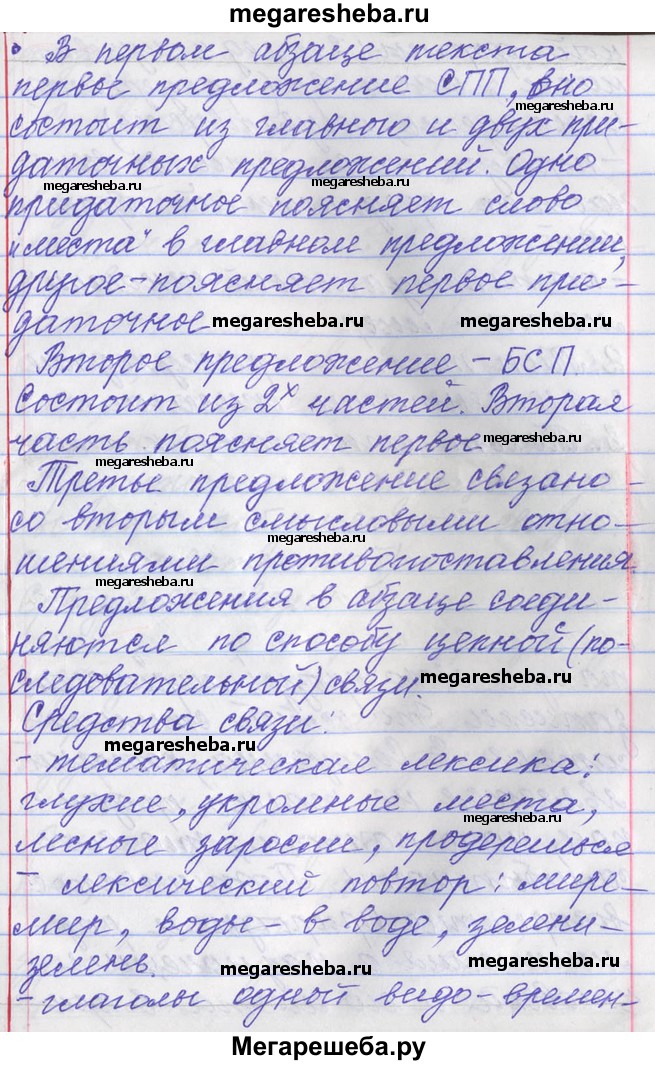 megaresheba.ru
• В первом абзаце текста
первое предложение СПП, оно
megaresheba.ru
состоит из главного и двух при-
даточных предложений. Одно
megaresheba.ru megaresheba.ru
придаточное поясняет слово
„места" в главном предложении,
другое-поясняет первое при-
даточное megaresheba.ru megaresheba.ru
Второе предложение - БСП.
Состоит из 2х частей. Вторая
часть поясняет первое megaresheba.ru
megaresheba.ru
Третье предложение связано-
со вторым смысловыми отно-
megaresheba.ru
шениями противопоставления.
megaresheba.ru
Предложения в абзаце соеди-
няются по способу цепной (по-
следовательной) связи. megaresheba.ru
Средства связи:
megaresheba.ru
- тематическая лексика:
глухие, укромные места,
megaresheba.ru
лесные заросли, продерешься
- лексический повтор: мире-
мир, воды - в воде, зелени-
зелень. megaresheba.ru megaresheba.ru
- глаголы одной видо-времен-
Мегарешеба.ру